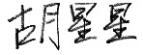 胡星星